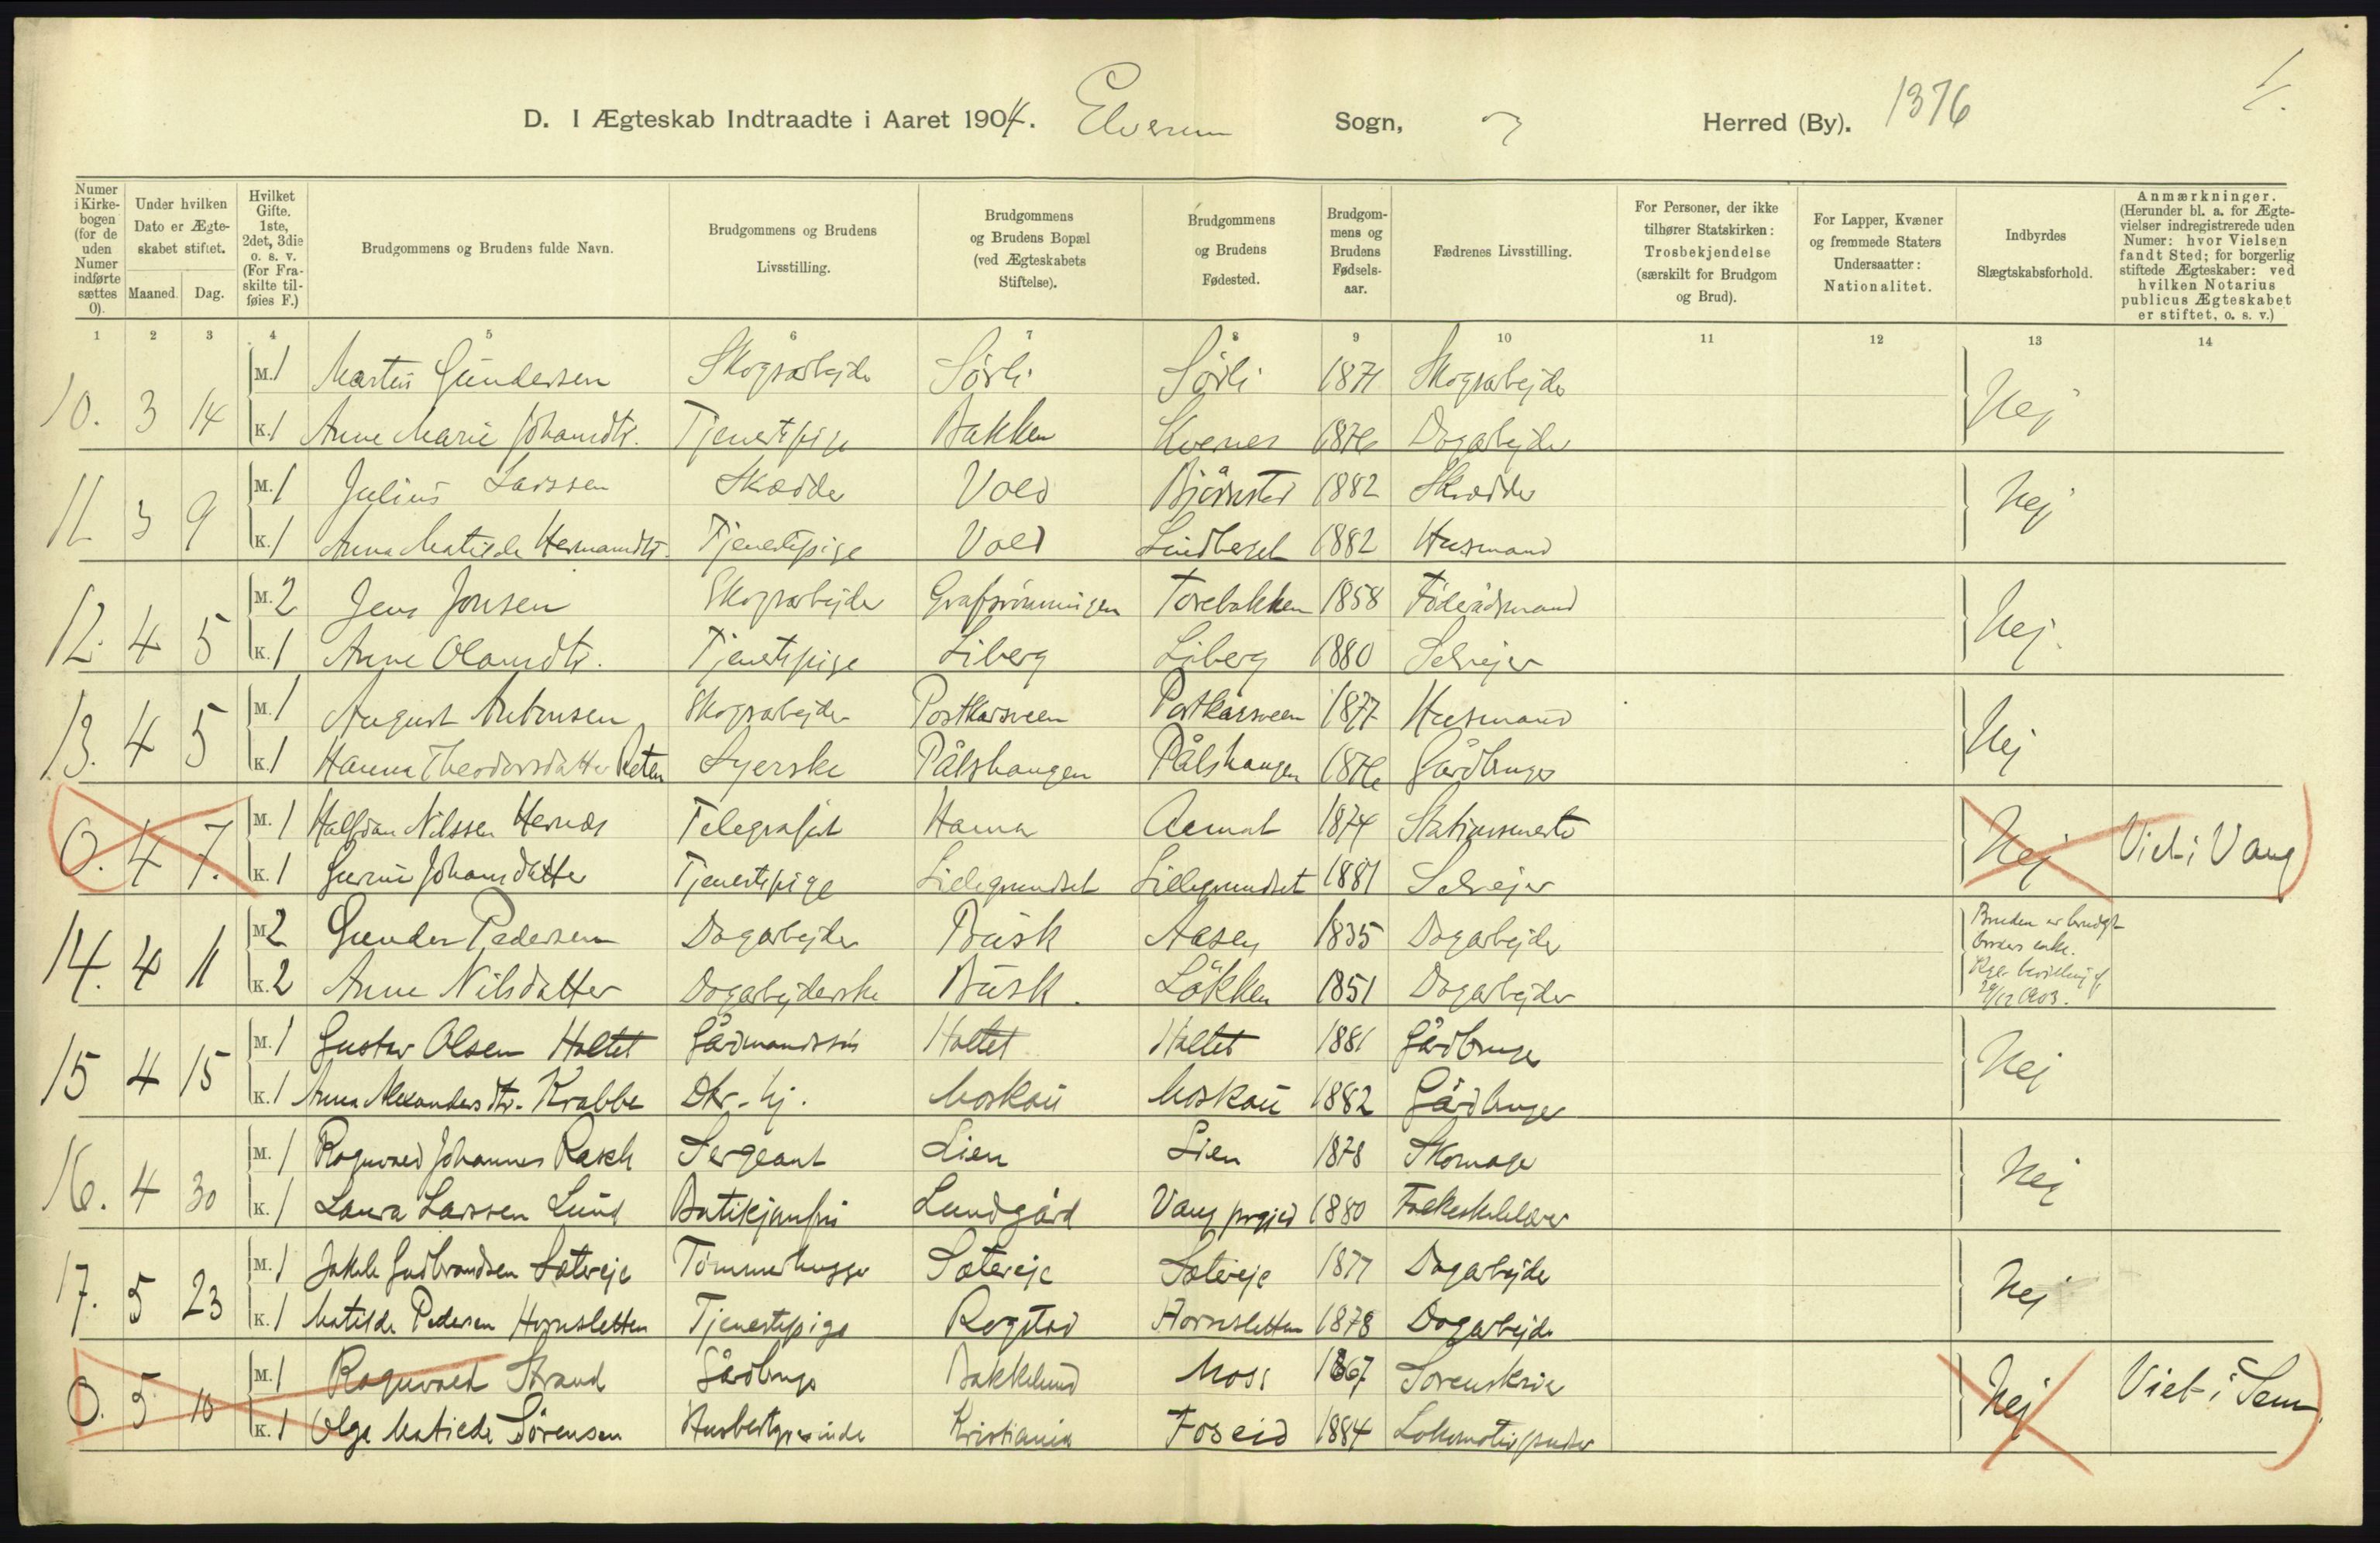 D. I Ægteskab Indtraadte i Aaret 1904. Elverum Sogn, Herred (By). 1376
Numer i Kirkebogen (for de uden Numer indførte sættes 0).
Under hvilken Dato er Ægteskabet stiftet. Maaned. Dag.
Hvilket Gifte. 1ste, 2det, 3die o. s. v. (For Fraskilte tilføies F.)
Brudgommens og Brudens fulde Navn.
Brudgommens og Brudens Livsstilling.
Brudgommens og Brudens Bopæl (ved Ægteskabets Stiftelse).
Brudgommens og Brudens Fødested.
Brudgommens og Brudens Fødselsaar.
Fædrenes Livsstilling.
For Personer, der ikke tilhører Statskirken: Trosbekjendelse (særskilt for Brudgom og Brud).
For Lapper, Kvæner og fremmede Staters Undersaatter: Nationalitet.
Indbyrdes Slægtskabsforhold.
Anmærkninger. (Herunder bl. a. for Ægtevielser indregistrerede uden Numer: hvor Vielsen fandt Sted; for borgerlig stiftede Ægteskaber: ved hvilken Notarius publicus Ægteskabet er stiftet, o. s. v.)
1 2 3 4 5 6 7 8 9 10 11 12 13 14
10. 3 14 M. 1 Martin Gundersen Skogsarbejder Sørli Sørli 1871 Skogsarbejder Nej
K. 1 Anne Marie Johansdtr. Tjenestepige Bakken Kvernes 1876 Dagarbejder
11. 3 9 M. 1 Julius Larssen Skrædder Vold Bjørnstad 1882 Skrædder Nej
K. 1 Anna Matilde Hermansdtr. Tjenestepige Vold Lindberget 1882 Husmand
12. 4 5 M. 2 Jens Jonsen Skogsarbejder Grafsrønningen Torebakken 1858 Føderådsmand Nej.
K. 1 Anne Olamdtr. Tjenestepige Liberg Liberg 1880 Selvejer
13. 4 5 M. 1 August Antonsen Skogsarbejder Postkarsveen Postkarsveen 1877 Husmand Nej
K. 1 Hanna Theodorsdatter Reten Syerske Pålshaugen Pålshaugen 1876 Gårdbruger
0. 4 7. M. 1 Halfdan Nilssen Hernæs Telegrafist Hamar Aamot 1874 Stationsmester Nej Viet i Vang
K. 1 Gurine Johansdatter Tjenestepige Lillegrundset Lillegrundset 1881 Selvejer
14. 4 11 M. 2 Gunder Pedersen Dagarbejder Busk Aasen 1835 Dagarbejder Bruden er brudg. broders enke.
K. 2 Anne Nilsdatter Dagarbejderske Busk. Løkken 1851 Dagarbejder Kgl. bevilling af 29/12 1903.
15 4 15 M. 1 Gustav Olsen Holtet Gårdmandssøn Holtet Holtet 1881 Gårdbruger Nej
K. 1 Anna Alexandersdtr. Krabbe Dtr. hj. Moskau Moskau 1882 Gårdbruger
16. 4 30 M. 1 Ragnvald Johannes Rasch Sergeant Lien Lien 1878 Skomager Nej
K. 1 Laura Larssen Lund Butikjomfru Lundgård Vang prgjeld 1880 Folkeskolelærer
17. 5 23 M. 1 Jakob Gudbrandsen Sætereje Tømmerhugger Sætereje Sætereje 1877 Dagarbejder Nej
K. 1 Matilde Pedersen Hornsletten Tjenestepige Rogstad Hornsletten 1878 Dagarbejder
0. 5 10 M. 1 Ragnvald Strand Gårdbruger Bakkelund Moss 1867 Sorenskriver Nej Viet i Sem.
K. 1 Olga Matilde Sørensen Husbestyrerinde Kristiania Foseid 1884 Lokomotivpudser